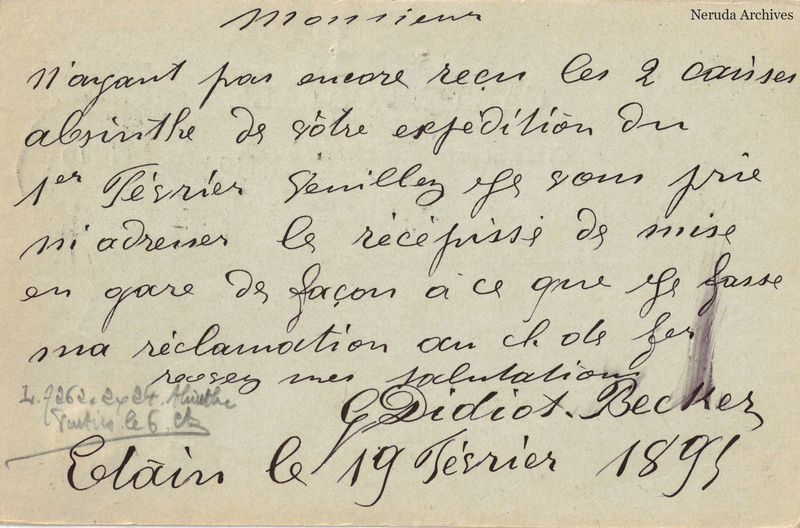 Neruda Archives
Monsieur
N'ayant pas encore reçu les 2 caisses
absinthe de vôtre expédition du
1er Février Veuillez je vous prie
m'adresser le récépissé de mise
en gare de façon à ce que je fasse
ma réclamation au ch de fer
recevez mes salutations
G Didiot-Becker
L. 7262. 2x24 Absinthe
le 6. ct
Etain le 19 Février 1895